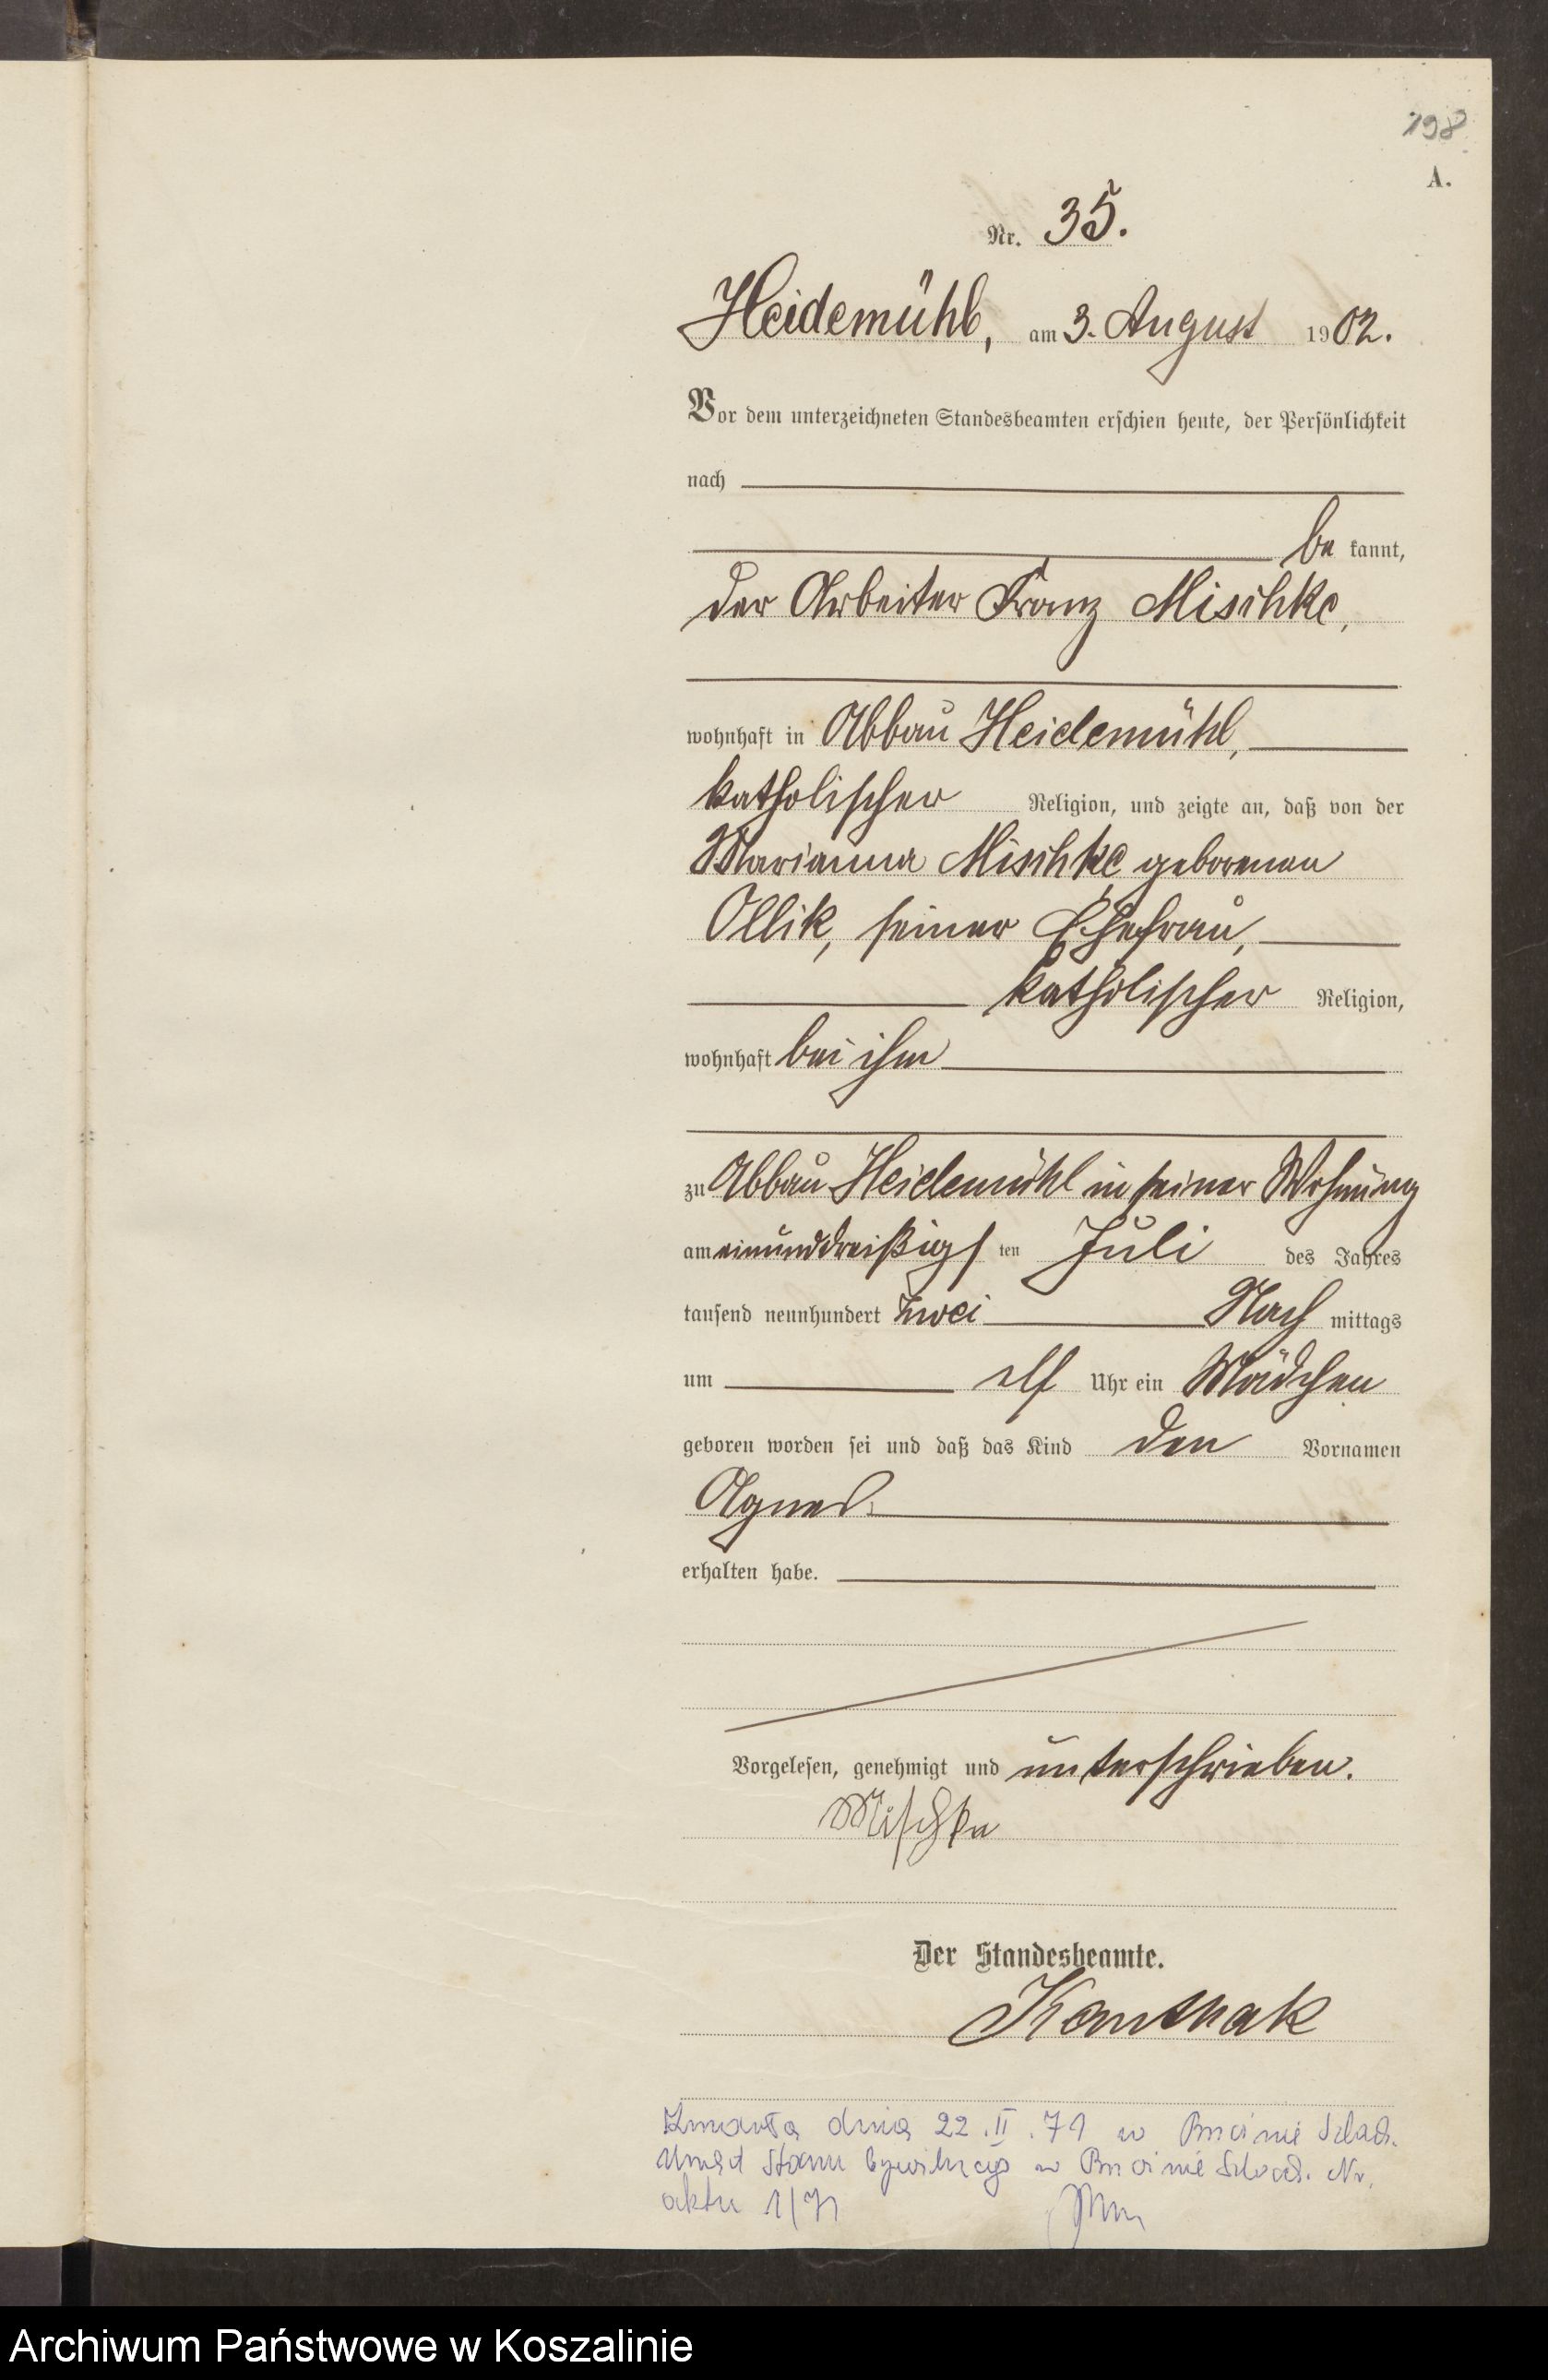 198
A.
Nr. 35.
Heidemühl, am 3. August 1902.
Vor dem unterzeichneten Standesbeamten erschien heute, der Persönlichkeit
nach
be kannt,
der Arbeiter Franz Mischke,
wohnhaft in Abbau Heidemühl,
katholischer Religion, und zeigte an, daß von der
Marianna Mischke geborenen
Ollik, seiner Ehefrau,
katholischer Religion,
wohnhaft bei ihm
zu Abbau Heidemühl in seiner Wohnung
am einunddreißigs ten Juli des Jahres
tausend neunhundert zwei Nach mittags
um elf Uhr ein Mädchen
geboren worden sei und daß das Kind den Vornamen
Agnes
erhalten habe.
Vorgelesen, genehmigt und unterschrieben.
Mischke
Der Standesbeamte.
Kanthak
Zmarła dnia 22.II.71 w
Urząd Stanu Cywilnego w Nr.
aktu 1/71
Archiwum Państwowe w Koszalinie